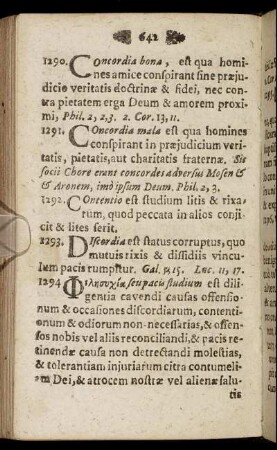 642
1290. Concordia bona, est qua homi-
nes amice conspirant sine præju-
dicio veritatis doctrinæ & fidei, nec con-
tra pietatem erga Deum & amorem proxi-
mi, Phil. 2, 2,3. 2. Cor. 13, 11.
1291. Concordia mala est qua homines
conspirant in præjudicium veri-
tatis, pietatis, aut charitatis fraternæ. Sic
socii Chore erunt concordes adversus Mosen &
& Aronem, imò ipsum Deum. Phil. 2, 3.
1292. Contentio est studium litis & rixa-
rum, quod peccata in alios conji-
cit & lites serit.
1293. Discordia est status corruptus, quo
mutuis rixis & dissidiis vincu-
lum pacis rumpitur. Gal. 5, 15. Luc. 11, 17.
1294 Φιλησυχία, seu pacis studium est dili-
gentia cavendi causas offensio-
num & occasiones discordiarum, contenti-
onum & odiorum non-necessarias, & offen-
sos nobis vel aliis reconciliandi, & pacis re-
tinendæ causa non detrectandi molestias,
& tolerantiam injuriarum citra contumeli-
am Dei, & atrocem nostræ vel alienæ salu-
tis